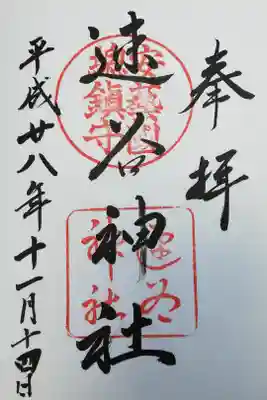 奉拝
速谷神社
安藝國
総鎮守
速谷
神社
平成廿八年十一月十四日